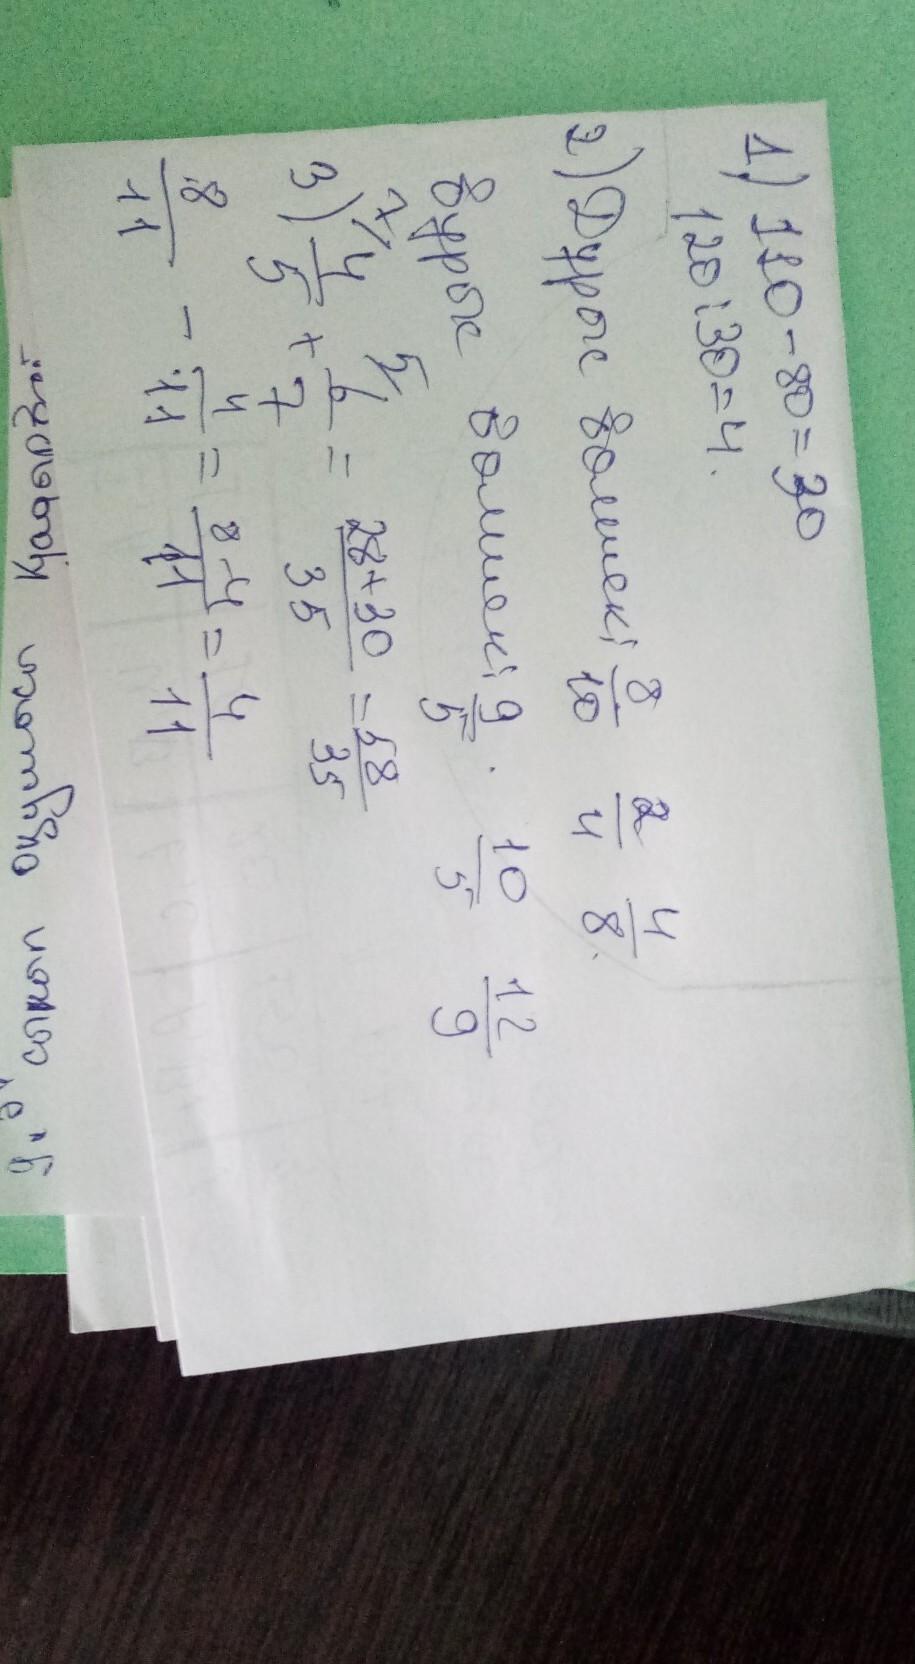 1) 110-80=30
120:30=4.
2) Дұрыс бөлшекі 8/10 2/4 4/8.
бұрыс бөлшекі 9/5. 10/5 12/9
3) 7/ 4/5 + 5/ 6/7 = 28+30/35 = 58/35
8/11 - 4/11 = 8-4/11 = 4/11
9 "ә" сынып оқушысы